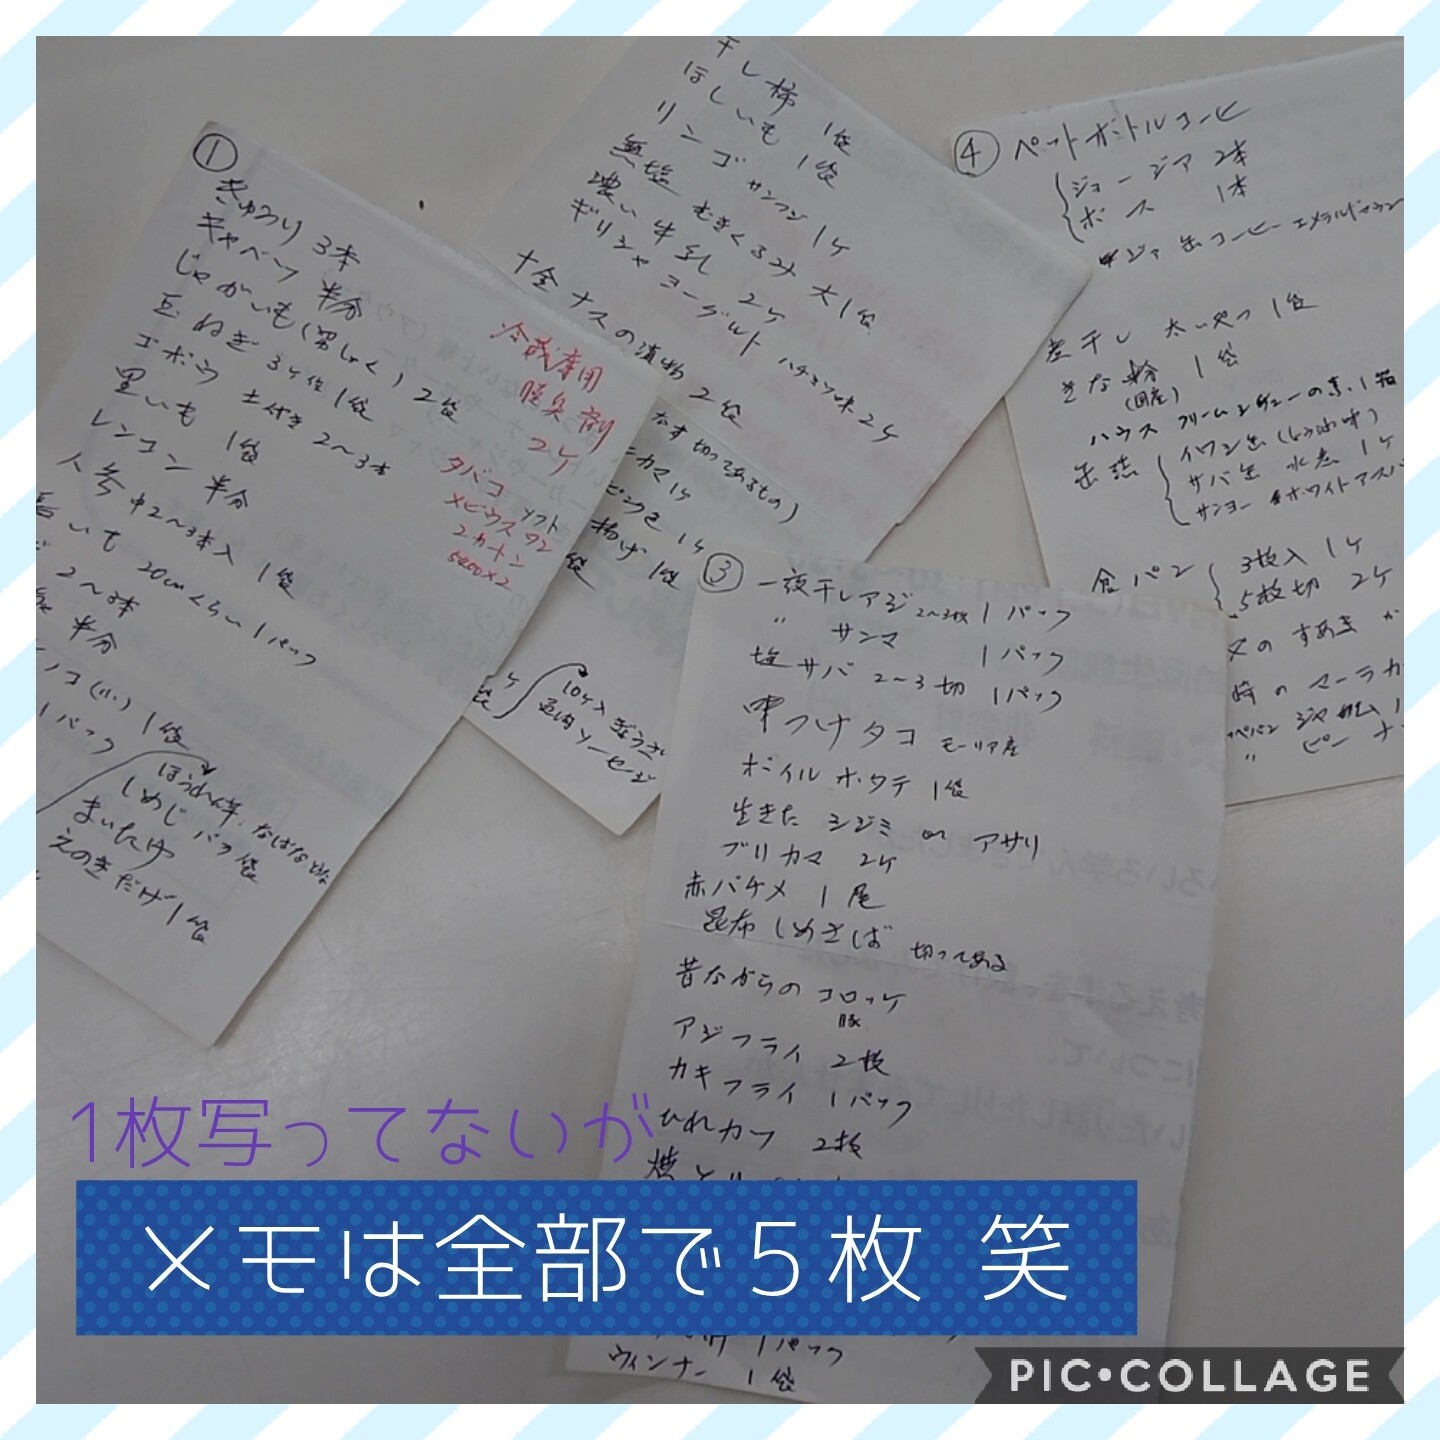 ①
きゅうり 3本
キャベツ 半分
じゃがいも(男しゃく) 2袋
玉ねぎ 3ケ位 1袋
ゴボウ 土付き 2〜3本
里いも 1袋
レンコン 半分
人参 中2〜3本入 1袋
長いも 20cmくらい 1パック
2〜3本
半分
ノコ(小) 1袋
1パック
ほうれん草、なばななど
しめじ バラ 1袋
まいたけ
えのきだけ 1袋
冷蔵庫用
脱臭剤
2ケ
タバコ
メビウス ソフト
ワン
2カートン
5400×2
干し柿 1袋
ほしいも 1袋
リンゴ サンフジ 1ケ
無塩 むきくるみ 大1袋
濃い牛乳 2ケ
ギリシャヨーグルト ハチミツ味 2ケ
十全ナスの漬物 2袋
なす切ってあるもの)
ニカマ 1ケ
1ケ
揚げ 1袋
袋
10ケ入 ぎょうざ
魚肉ソーセージ
③
一夜干しアジ 2〜3枚 1パック
〃 サンマ 1パック
塩サバ 2〜3切 1パック
タコ モーリア産
ボイルホタテ 1袋
生きた シジミ or アサリ
ブリカマ 2ケ
赤バチメ 1尾
昆布しめさば 切ってある
昔ながらのコロッケ
豚
アジフライ 2枚
カキフライ 1パック
ひれカツ 2枚
1パック
ウィンナー 1袋
④
ペットボトルコーヒー
ジョージア 2本
ボス 1本
ジョージア 缶コーヒー エメラルドマウン
煮干し 太いやつ 1袋
きな粉 1袋
(国産)
ハウス クリームシチューの素 1箱
缶詰
イワシ缶(しょうゆ味)
サバ缶 水煮 1ケ
サンヨー ホワイトアスパ
食パン
3枚入 1ケ
5枚切 2ケ
のすあま
のマーラカ
〃 ピーナ
1枚写ってないが
メモは全部で5枚 笑
PIC•COLLAGE